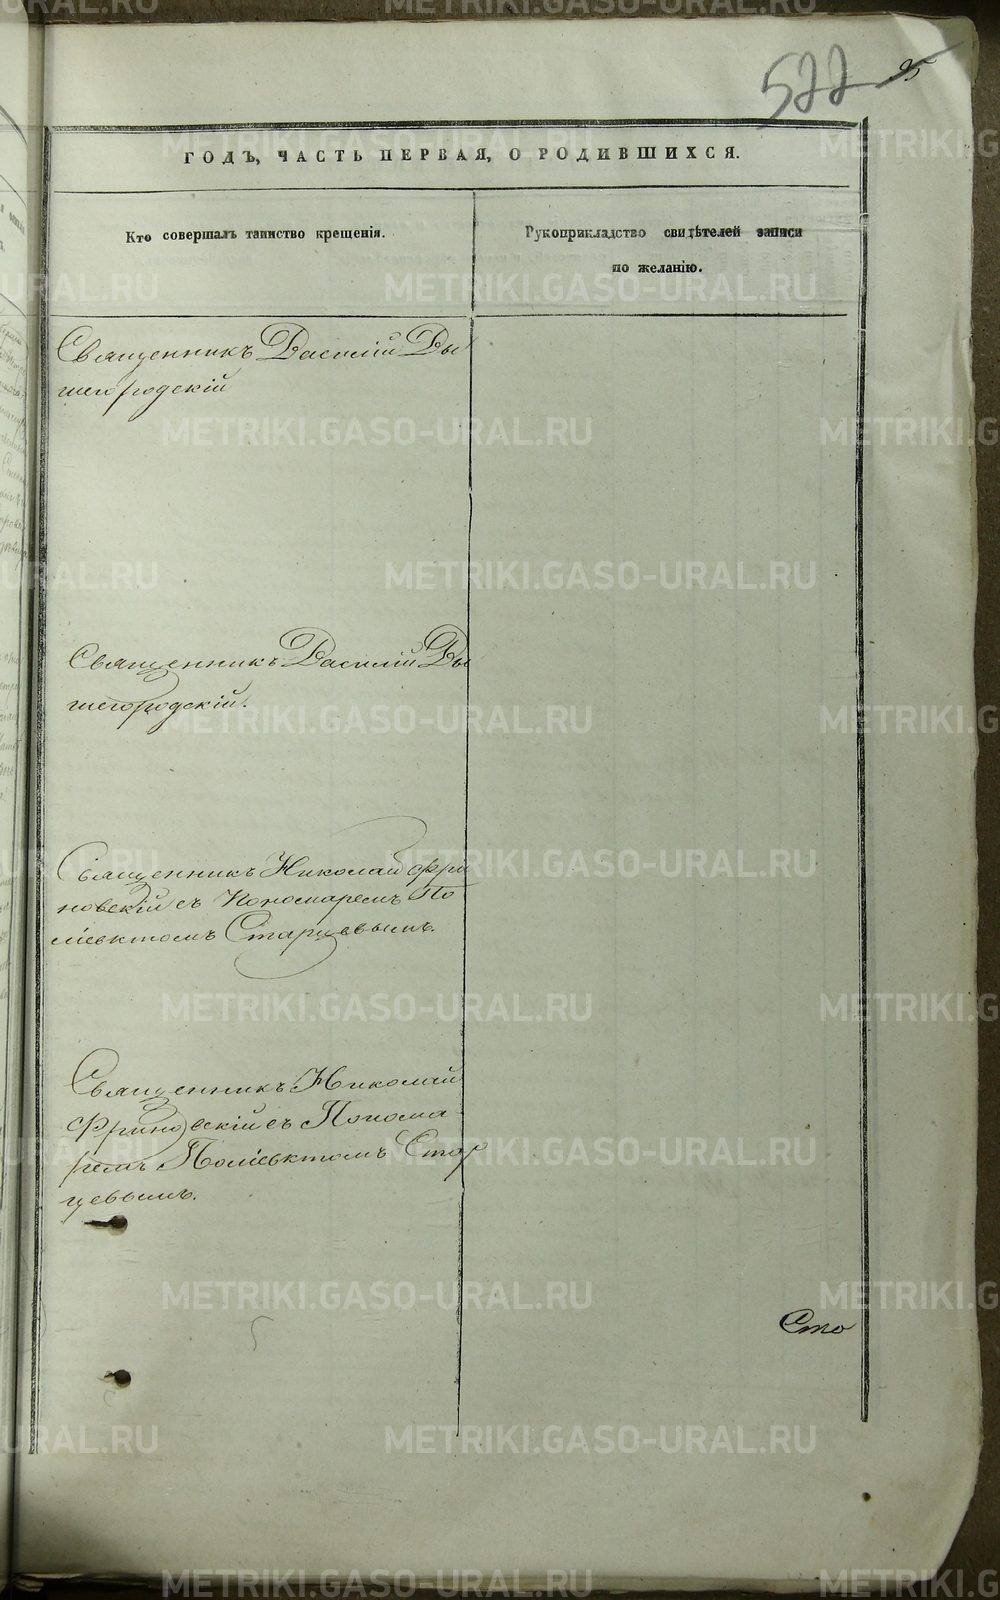 522 95
ГОДЪ, ЧАСТЬ ПЕРВАЯ, О РОДИВШИХСЯ.
Кто совершалъ таинство крещенія.
Рукоприкладство свидѣтелей записи
по желанію.
Священникъ Василій Вы
шегородскій
Священникъ Василій Вы
шегородскій.
Священникъ Николай Фри
новскій съ Пономаремъ По
ліевктомъ Старцевымъ.
Священникъ Николай
Фриновскій съ Понома-
ремъ Поліевктомъ Стар
цевымъ.
Сто
METRIKI.GASO-URAL.RU